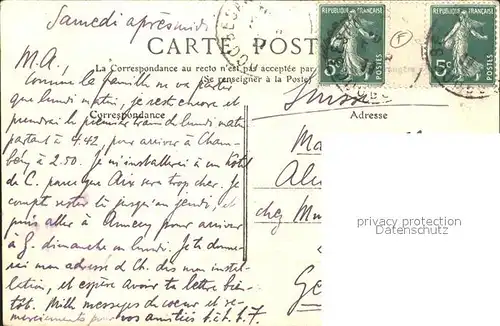 Samedi après midi
CARTE POST
RÉPUBLIQUE FRANÇAISE
RÉPUBLIQUE FRANÇAISE
5c
5c
La Correspondance au recto n'est pas acceptée par
(Se renseigner à la Poste)
Correspondance
Adresse
M.A.,
Comme la famille ne va partir
que lundi matin, je reste encore et
prendrai le premier train de lundi matin
partant à 4.42, pour arriver à Cham-
béry à 2.50. Je m'installerai à un hôtel
de C. parce que Aix sera trop cher. Je
compte rester là jusqu'au jeudi, et
puis aller à Annecy pour arriver
à G. dimanche ou lundi. Je te donne-
rai mon adresse de Ch. dès mon instal-
lation, et espère avoir ta lettre bien-
tôt. Mille messages de coeur et re-
merciements pour vos amitiés
Suisse
chez
privacy protection
Datenschutz